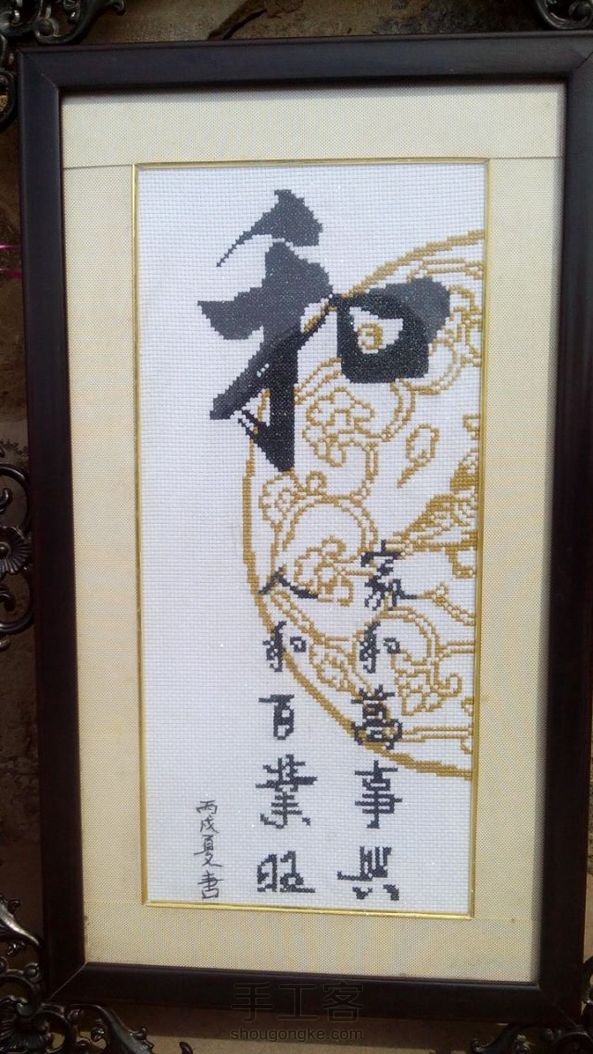 和
家和萬事興
人和百業旺
丙戌夏書
手工客
shougongke.com